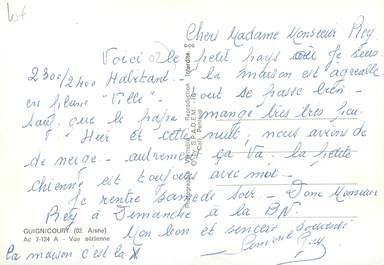 Lot
Chers Madame Monsieur Rey
Voici le petit pays où je suis
2300/2400 Habitant. - la maison est agréable
en pleine "Ville" - tout se passe bien -
sauf que le papa mange très très peu
Hier et cette nuit, nous avions de
de neige - autrement ça va. la petite
chienne est toujours avec moi. -
Je rentre samedi soir - Donc Monsieur
Rey à Dimanche à la BN.
Mon bon et sincère souvenir
GUIGNICOURT (02. Aisne)
Ac 7-124 A - Vue aérienne
la maison c'est la X
Reproduction Interdite
S.P.A.D.E.M.